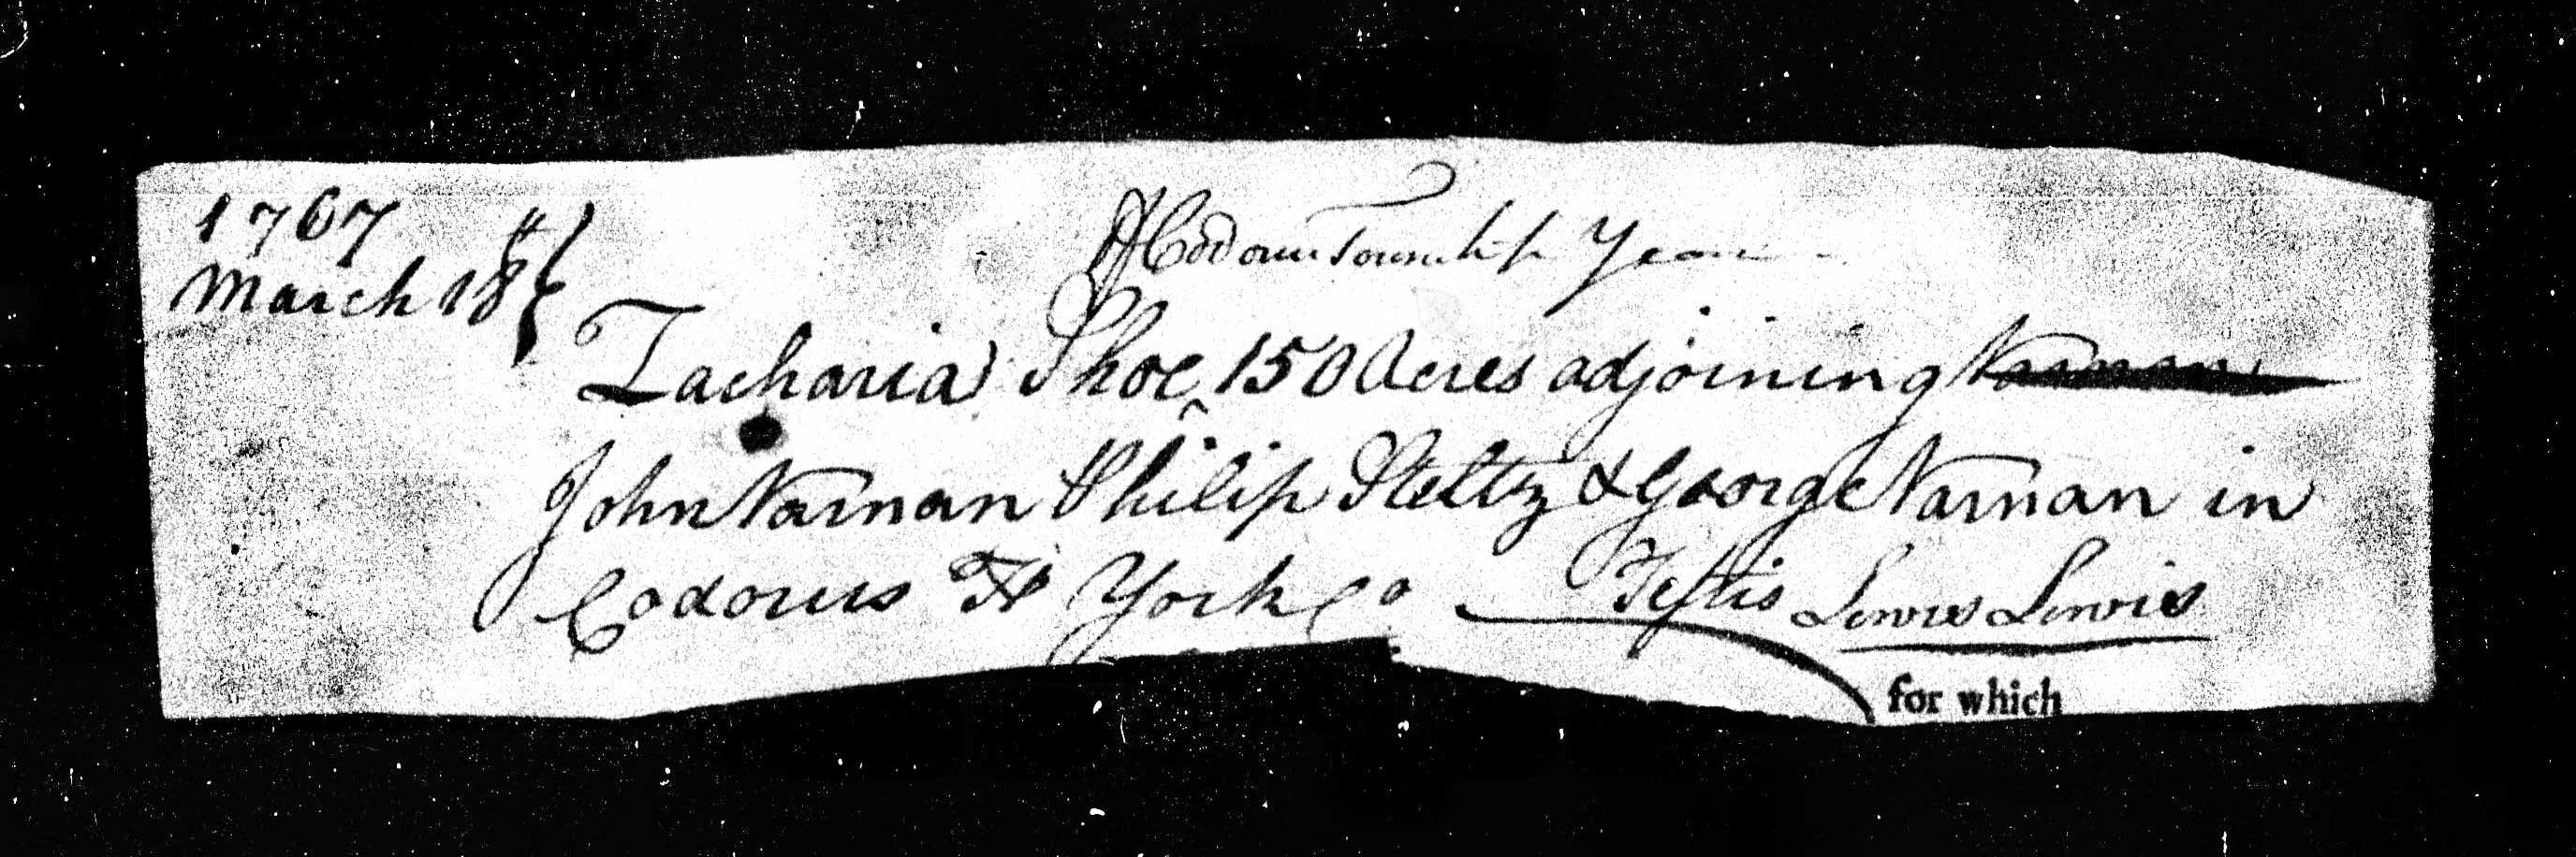 1767
March 18th
of Codorus Township Yeom
Zacharia Shoe, 150 Acres adjoining Varnan
John Varnan Philip Steltz & George Varnan in
Codorus Tp York Co Testis Lewis Lewis
for which